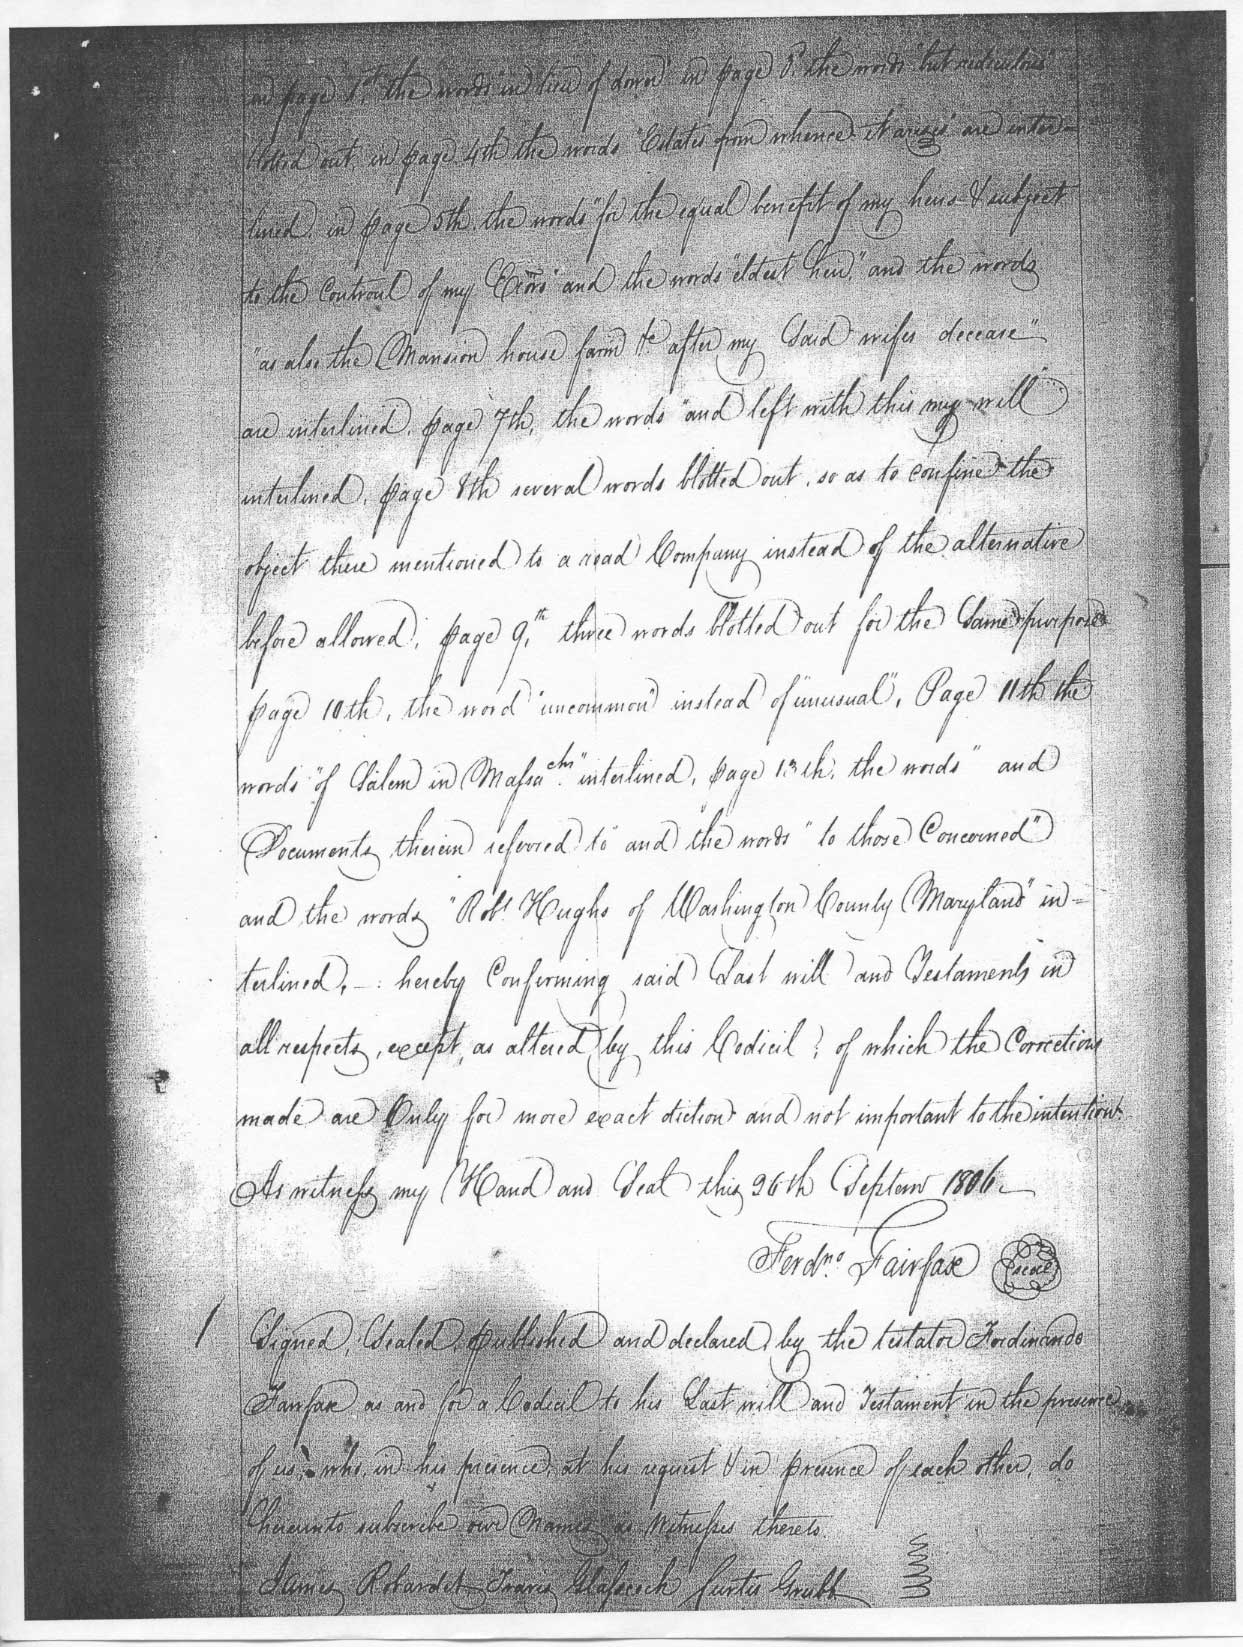 in page 1st the words "in lieu of dower" in page 3d the words "but rediculous"
blotted out, in page 4th the words "Estates from whence it arises" are inter-
lined, in page 5th, the words "for the equal benefit of my heirs & subject
to the Controul of my Exōrs" and the words "eldest heir," and the words
"as also the Mansion house farm &c after my Said wifes decease"
are interlined, page 7th, the words "and left with this my will"
interlined, page 8th several words blotted out, so as to confine the
object there mentioned to a road Company instead of the alternative
before allowed, page 9,th three words blotted out for the Same purpose
page 10th, the word "uncommon" instead of "unusual", Page 11th the
words "of Salem in Massachs" interlined, page 13th, the words " and
Documents therein referred to" and the words "to those Concerned"
and the words "Robt Hughs of Washington County Maryland" in=
terlined, —: hereby Confirming said Last will and Testaments in
all respects, except, as altered by this Codicil; of which the Corrections
made are Only for more exact diction and not important to the intention
As witness my Hand and Seal this 26th Septem 1806
Ferdno. Fairfax seal
Signed, Sealed, published and declared by the testator Ferdinando
Fairfax as and for a Codicil to his Last will and Testament in the presence
of us, who, in his presence, at his request & in presence of each other, do
hereunto subscribe our Names as Witnesses thereto.
James Robardet Travis Glasscock Curtis Grubb